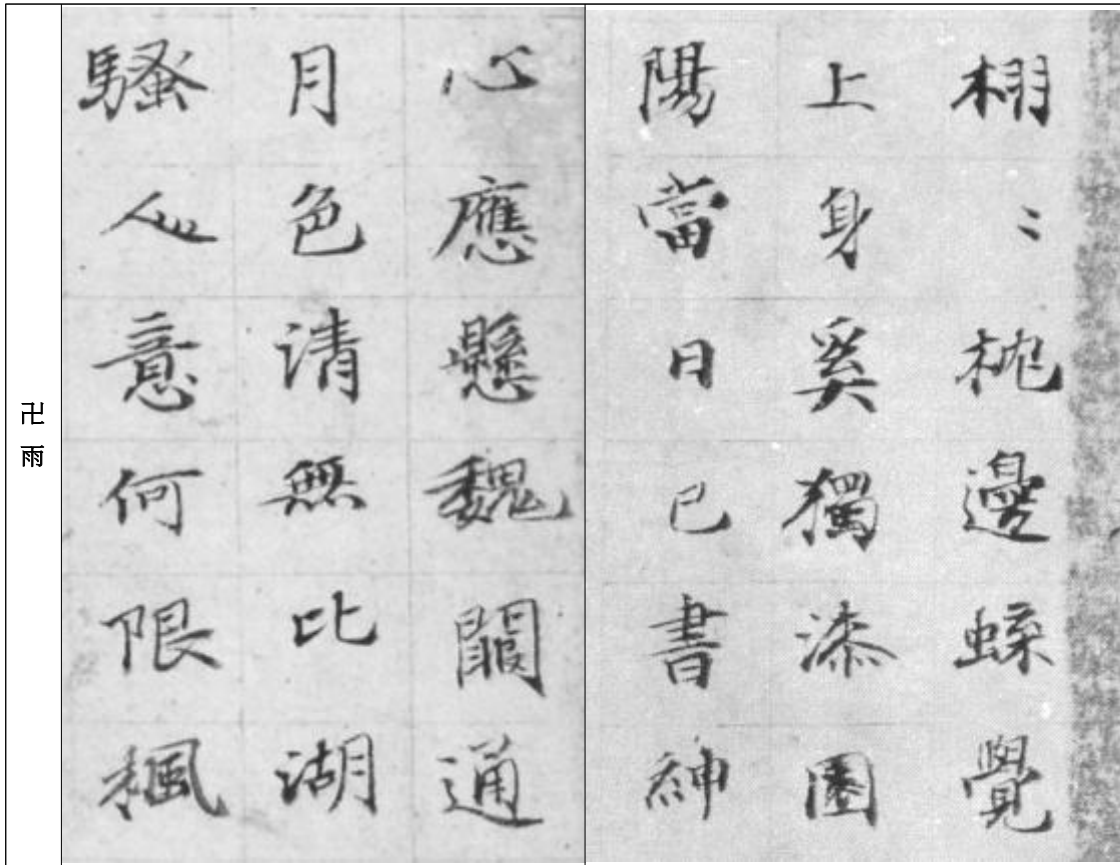 栩〻枕邊蝶覺
上身奚獨漆園
陽當日已書紳
心應懸魏闕通
月色清無比湖
騷人意何限楓
卍雨